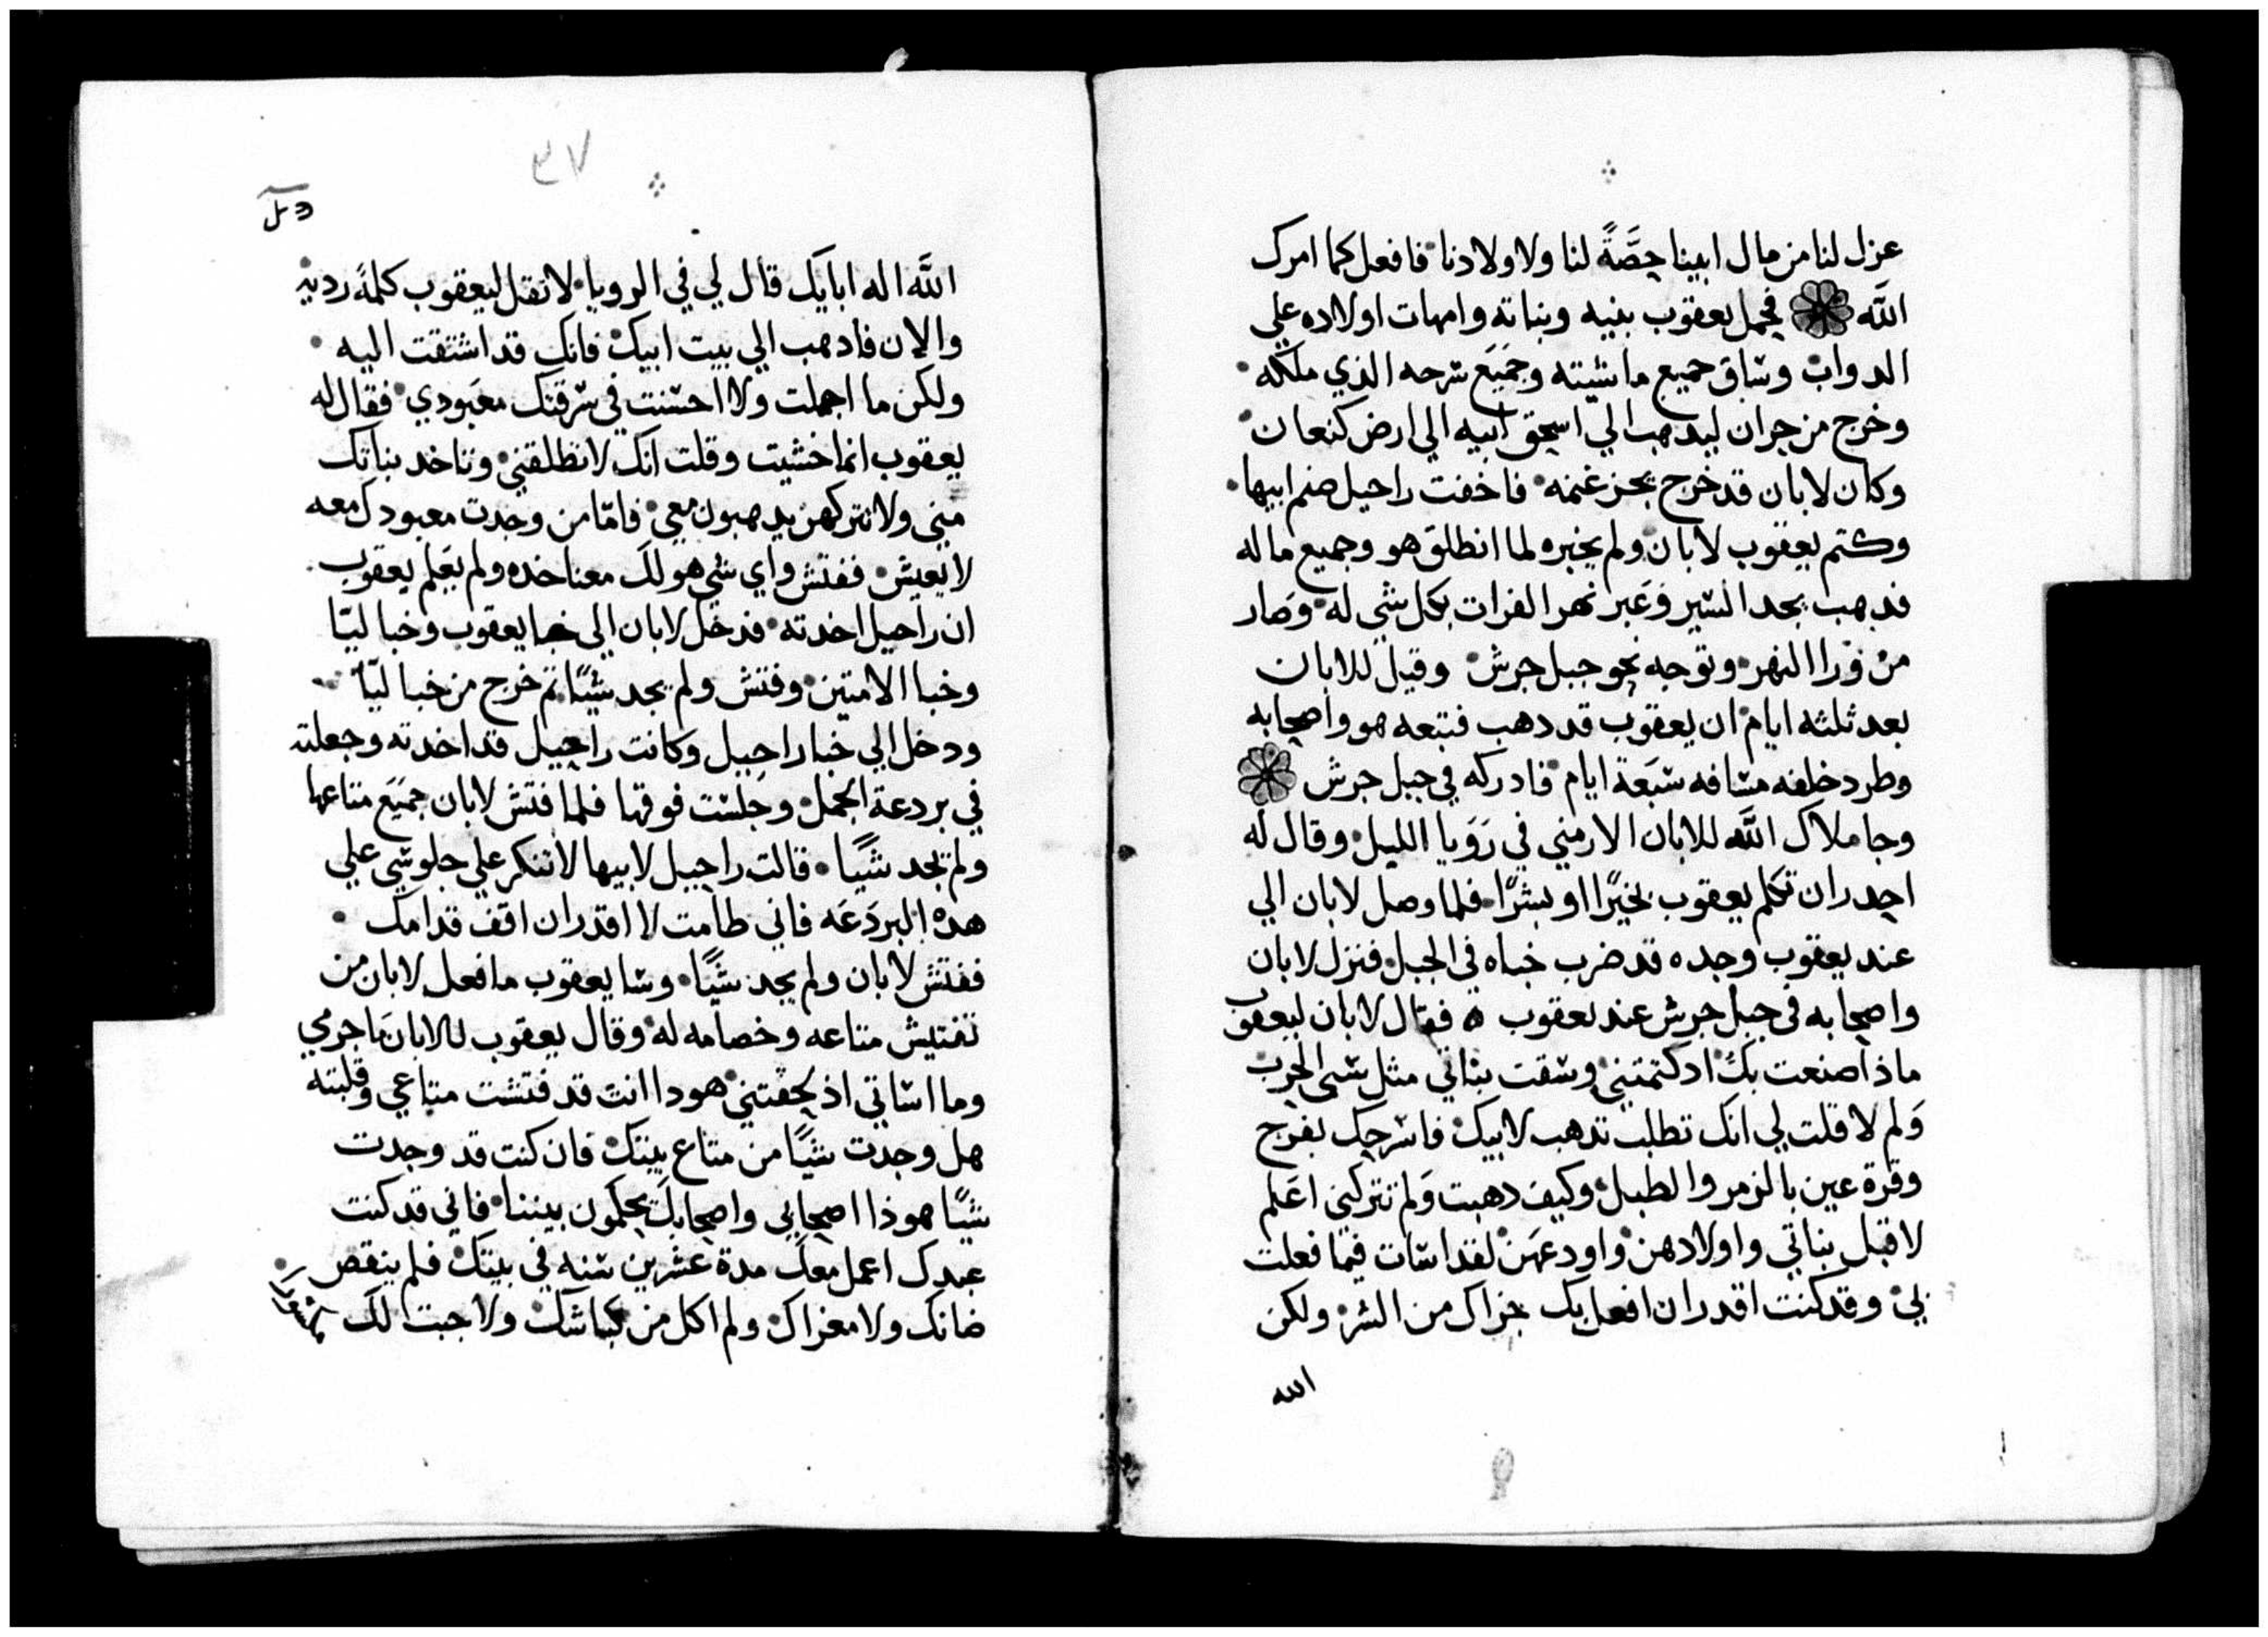 عزل لنا من مال ابينا حِصَّةً لنا ولاولادنا فافعل كما امرك
الله فحمل يعقوب بنيه وبناته وامهات اولاده علي
الدواب وساق جميع ماشيته وجميع سرحه الذي ملكه
وخرج من حران ليدهب الي اسحق ابيه الي ارض كنعان
وكان لابان قد خرج يجز غنمه فاخفت راحيل صنم ابيها
وكتم يعقوب لابان ولم يخبره لما انطلق هو وجميع ماله
فدهب يجد السير وعبر نهر الفرات بكل شي له وصار
من ورا النهر وتوجه نحو جبل جرش وقيل للابان
بعد ثلثه ايام ان يعقوب قد دهب فتبعه هو واصحابه
وطرد خلفه مسافه سبعة ايام فادركه في جبل جرش
وجا ملاك الله للابان الارمني في رويا الليل وقال له
احدر ان تكلم يعقوب بخيرًا او بشرًا فلما وصل لابان الي
عند يعقوب وجده قد ضرب خباه في الجبل فنزل لابان
واصحابه في جبل جرش عند يعقوب ه فقال لابان ليعقوب
ماذا صنعت بك ادكتمتني وسقت بناتي مثل سبي الحرب
ولم لا قلت لي انك تطلب تدهب لابيك فاسرحك بفرح
وقرة عين بالزمر والطبل وكيف دهبت ولم تتركني اعلم
لاقبل بناتي واولادهن واودعهن لقد اسات فيما فعلت
بي وقد كنت اقدر ان افعل بك جزاك من الشر ولكن
الله
٣٧
الله اله ابايك قال لي في الرويا لا تقل ليعقوب كلمةً رديه
والان فادهب الي بيت ابيك فانك قد اشتقت اليه
ولكن ما اجملت ولا احسنت في سرقتك معبودي فقال له
يعقوب انما خشيت وقلت انك لا تطلقني وتاخد بناتك
مني ولا تتركهن يدهبون معي فامّا من وجدت معبودك معه
لا يعيش ففتش واي شي هو لك معنا خده ولم يعلم يعقوب
ان راحيل اخدته فدخل لابان الي خبا يعقوب وخبا ليّا
وخبا الامتين وفتش ولم يجد شيًا تم خرج من خبا ليّا
ودخل الي خبا راحيل وكانت راحيل قد اخدته وجعلته
في بردعة الجمل وجلست فوقها فلما فتش لابان جميع متاعها
ولم يجد شيًا قالت راحيل لابيها لا تنكر علي جلوسي علي
هده البردعه فاني طامت لا اقدر ان اقف قدامك
ففتش لابان ولم يجد شيًا وسا يعقوب ما فعل لابان من
تفتيش متاعه وخصامه له وقال يعقوب للابان ما جرمي
وما اساتي اذ لحقتني هودا انت قد فتشت متاعي وقلبته
هل وجدت شيًا من متاع بيتك فان كنت قد وجدت
شيًا هوذا اصحابي واصحابك يحكمون بيننا فاني قد كنت
عبدك اعمل معك مدة عشرين سنه في بيتك فلم ينقص
ضانك ولا معزاك ولم اكل من كباشك ولا جبت لك مكسورًا